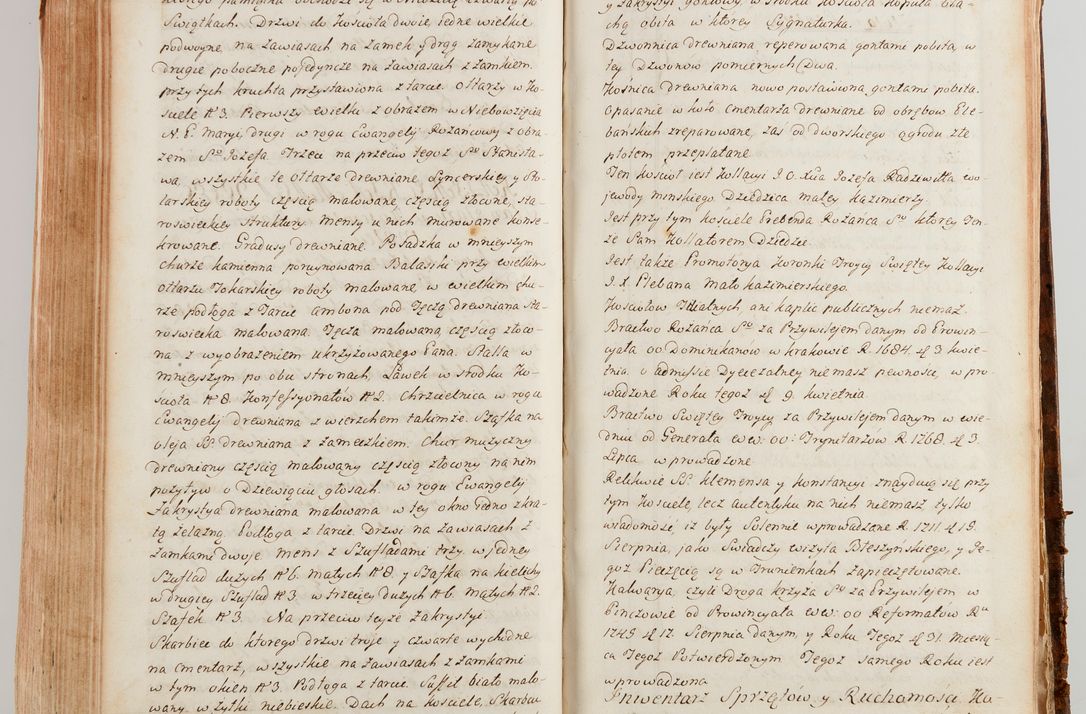 którego pamiątka obchodzi się w Niedzielę czwartą po
Swiątkach. Drzwi do Kościoła dwoie, iedne wielkie
podwoyne, na zawiasach na zamek y drąg zamykane
drugie poboczne pojedyncze na zawiasach z zamkiem.
przy tych kruchta przystawiona z tarcic. Ołtarzy w Ko-
sciele N 3. Pierwszy wielki z obrazem w Niebowzięcia
N. P. Maryi, drugi w rogu Ewangelij Rożańcowy z obra-
zem So Jozefa Trzeci na przeciw tegoż So Stanisła-
wa, wszystkie te ołtarze drewniane, Sznycerskiey y Sto-
larskiey roboty częścią malowane, częścią złocone, sta-
roswieckiey struktury. Mensy u nich murowane konse-
krowane. Gradusy drewniane. Posadzka w mnieyszym
churze kamienna poruynowana Balaski przy wielkim
ołtarzu Tokarskiey roboty malowane, w wielkim chu-
rze podłoga z Tarcic ambona pod Tęczą drewniana sta-
roswiecka malowana. Tęcza malowana, częścią złoco-
na z wyobrażeniem ukrzyżowanego Pana. Stalla w
mnieyszym po obu stronach, Ławek w srodku Ko-
scioła N 8. Konfessyonałów N 2. Chrzcielnica w rogu
Ewangelij drewniana z wierzchem takimże. Szafka na
oleja SS. drewniana z zameczkiem. Chur muzyczny
drewniany częścią malowany częścią złocony na nim
pozytyw o Dziewięciu głosach. w rogu Ewangelij
Zakrystya drewniana malowana w tey okno iedno z kra-
tą żelazną. Podłoga z tarcic. Drzwi na zawiasach z
zamkami dwoje. Mens z Szufladami trzy. w jedney
Szuflad dużych N 6. małych N 8. y Szafka na kielichy
w drugiey Szuflad N 3. w trzeciey dużych N 6. małych N 2.
Szafek N 3. Na przeciw teyże Zakrystyi
Skarbiec do ktorego drzwi troje y czwarte wychodne
na cmentarz, wszystkie na zawiasach z zamkami
w tym okien N 3. Podłoga z tarcic. Suffit biało malo-
wany w żyłki niebieskie. Dach na kościele, Skarbcu
y zakrystyi gontowy, w srodku kościoła kopuła bla-
chą obita w ktorey Sygnaturka.
Dzwonnica drewniana, reperowana gontami pobita, w
tey Dzwonow pomiernych Dwa.
Kośnica drewniana nowo postawiona, gontami pobita.
Opasanie w koło Cmentarza drewniane od obrębow Ple-
bańskich zreparowane, zas od dworskiego ogrodu złe
płotem przeplatane
Ten kosciół iest Kollacyi J. O. Xcia Jozefa Radziwiłła wo-
jewody minskiego Dziedzica małey kazimierzy.
Jest przy tym kosciele Prebenda Rożańca So ktorey Ten-
że Pan Kollatorem Dziedzic
Jest także Promotorya Koronki Troycy Swiętey Kollacyi
J. X. Plebana Mało kazimierskiego.
Kościołow Filialnych, ani kaplic publicznych niemasz.
Bractwo Rożańca So za Przywilejem danym od Prowin-
cyała OO Dominikanów w krakowie R. 1684. d 3 kwie-
tnia. o admissie Dyecezalney nie masz pewności, wpro-
wadzone Roku tegoż d 9. kwietnia.
Bractwo Swiętey Troycy za Przywilejem danym w wie-
dniu od Generała WW. OO: Trynitarzów R. 1768. d 3.
Lipca wprowadzone
Relikwie SS. klemensa y konstancyi znayduią się przy
tym kosciele, lecz autentyku na nich niemasz tylko
wiadomość iż były Solennie wprowadzone R. 1711. d 19.
Sierpnia, jako Swiadczy wizyta Błeszyńskiego, y Je-
goż Pieczęcią są w Trunienkach zapieczętowane.
Kalwarya, czyli Droga krzyża So za Przywilejem w
Pinczowie od Prowincyała WW: OO Reformatów Ru
1749 d 17. Sierpnia danym, y Roku Tegoż d 31. Miesią-
ca Tegoż Potwierdzonym Tegoż samego Roku iest
wprowadzona
Inwentarz Sprzętów y Ruchomości Ko-